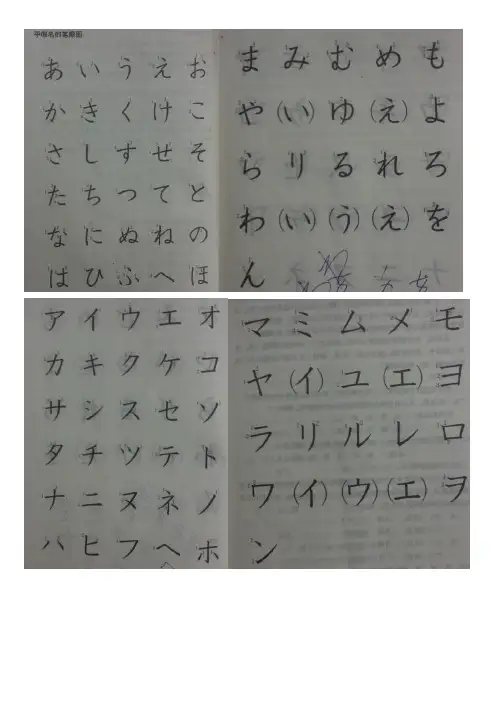 平假名的笔顺图
あ い う え お
か き く け こ
さ し す せ そ
た ち つ て と
な に ぬ ね の
は ひ ふ へ ほ
ま み む め も
や (い) ゆ (え) よ
ら り る れ ろ
わ (い) (う) (え) を
ん
ア イ ウ エ オ
カ キ ク ケ コ
サ シ ス セ ソ
タ チ ツ テ ト
ナ ニ ヌ ネ ノ
ハ ヒ フ ヘ ホ
マ ミ ム メ モ
ヤ (イ) ユ (エ) ヨ
ラ リ ル レ ロ
ワ (イ) (ウ) (エ) ヲ
ン